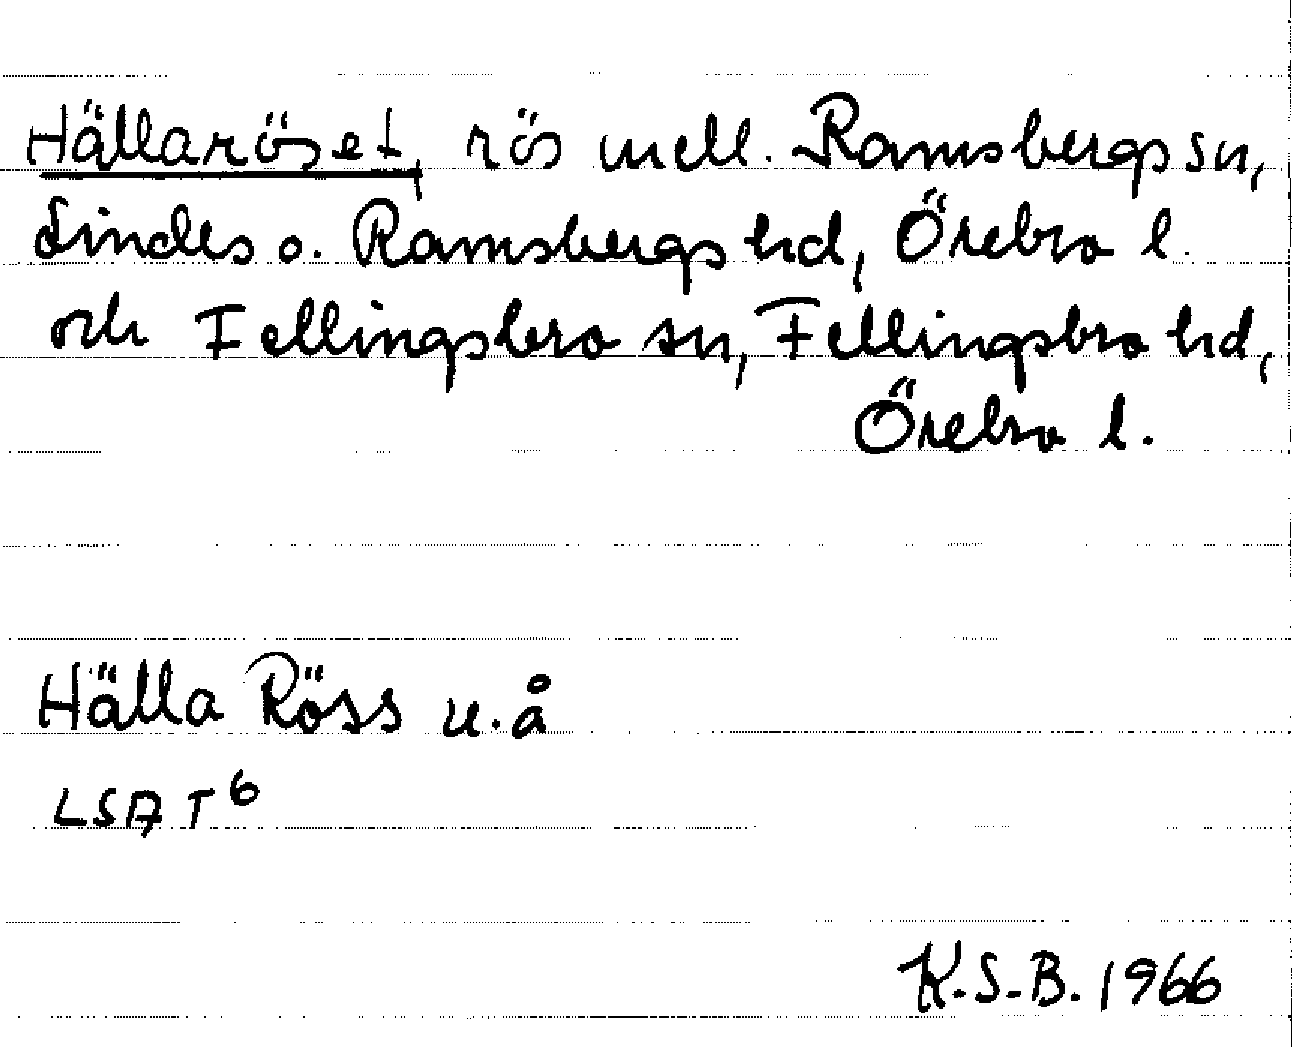 Hällaröset, rös mell. Ramsbergs sn,
Lindes o. Ramsbergs hd, Örebro l.
och Fellingsbro sn, Fellingsbro hd,
Örebro l.
Hälla Röss u.å
LSA T6
K.S.B. 1966